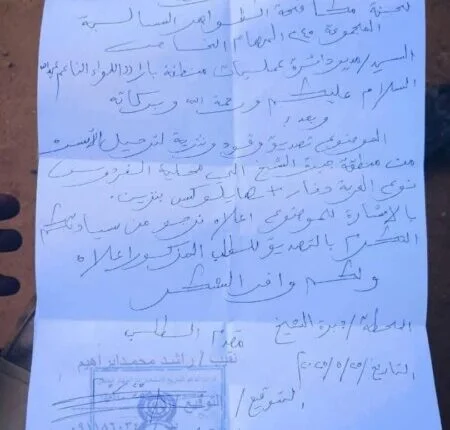 لجنة مكافحة الظواهر السالبة
المجموعة ٢٤٠ المهام الخاصة
السيد/ مدير دائرة عمليات منطقة بارا اللواء النا عم
السلام عليكم ورحمة الله وبركاته
وبعد،
الموضوع تصديق وقود ونثرية لترحيل الأسرة
من منطقة جبرة الشيخ الى محلية الفردوس
نوع العربة دفار + هايلوكس بنزين.
بالإشارة للموضوع اعلاه نرجو من سيادتكم
الكرم بالتصديق للطلب المذكور اعلاه
ولكم وافر الشكر
المحطة/ جبرة الشيخ
مقدم الطلب
نقيب/ راشد محمد ابراهيم
التاريخ/ ٢٥/٥/٢٠٢٥
التوقيع/
التوقيع